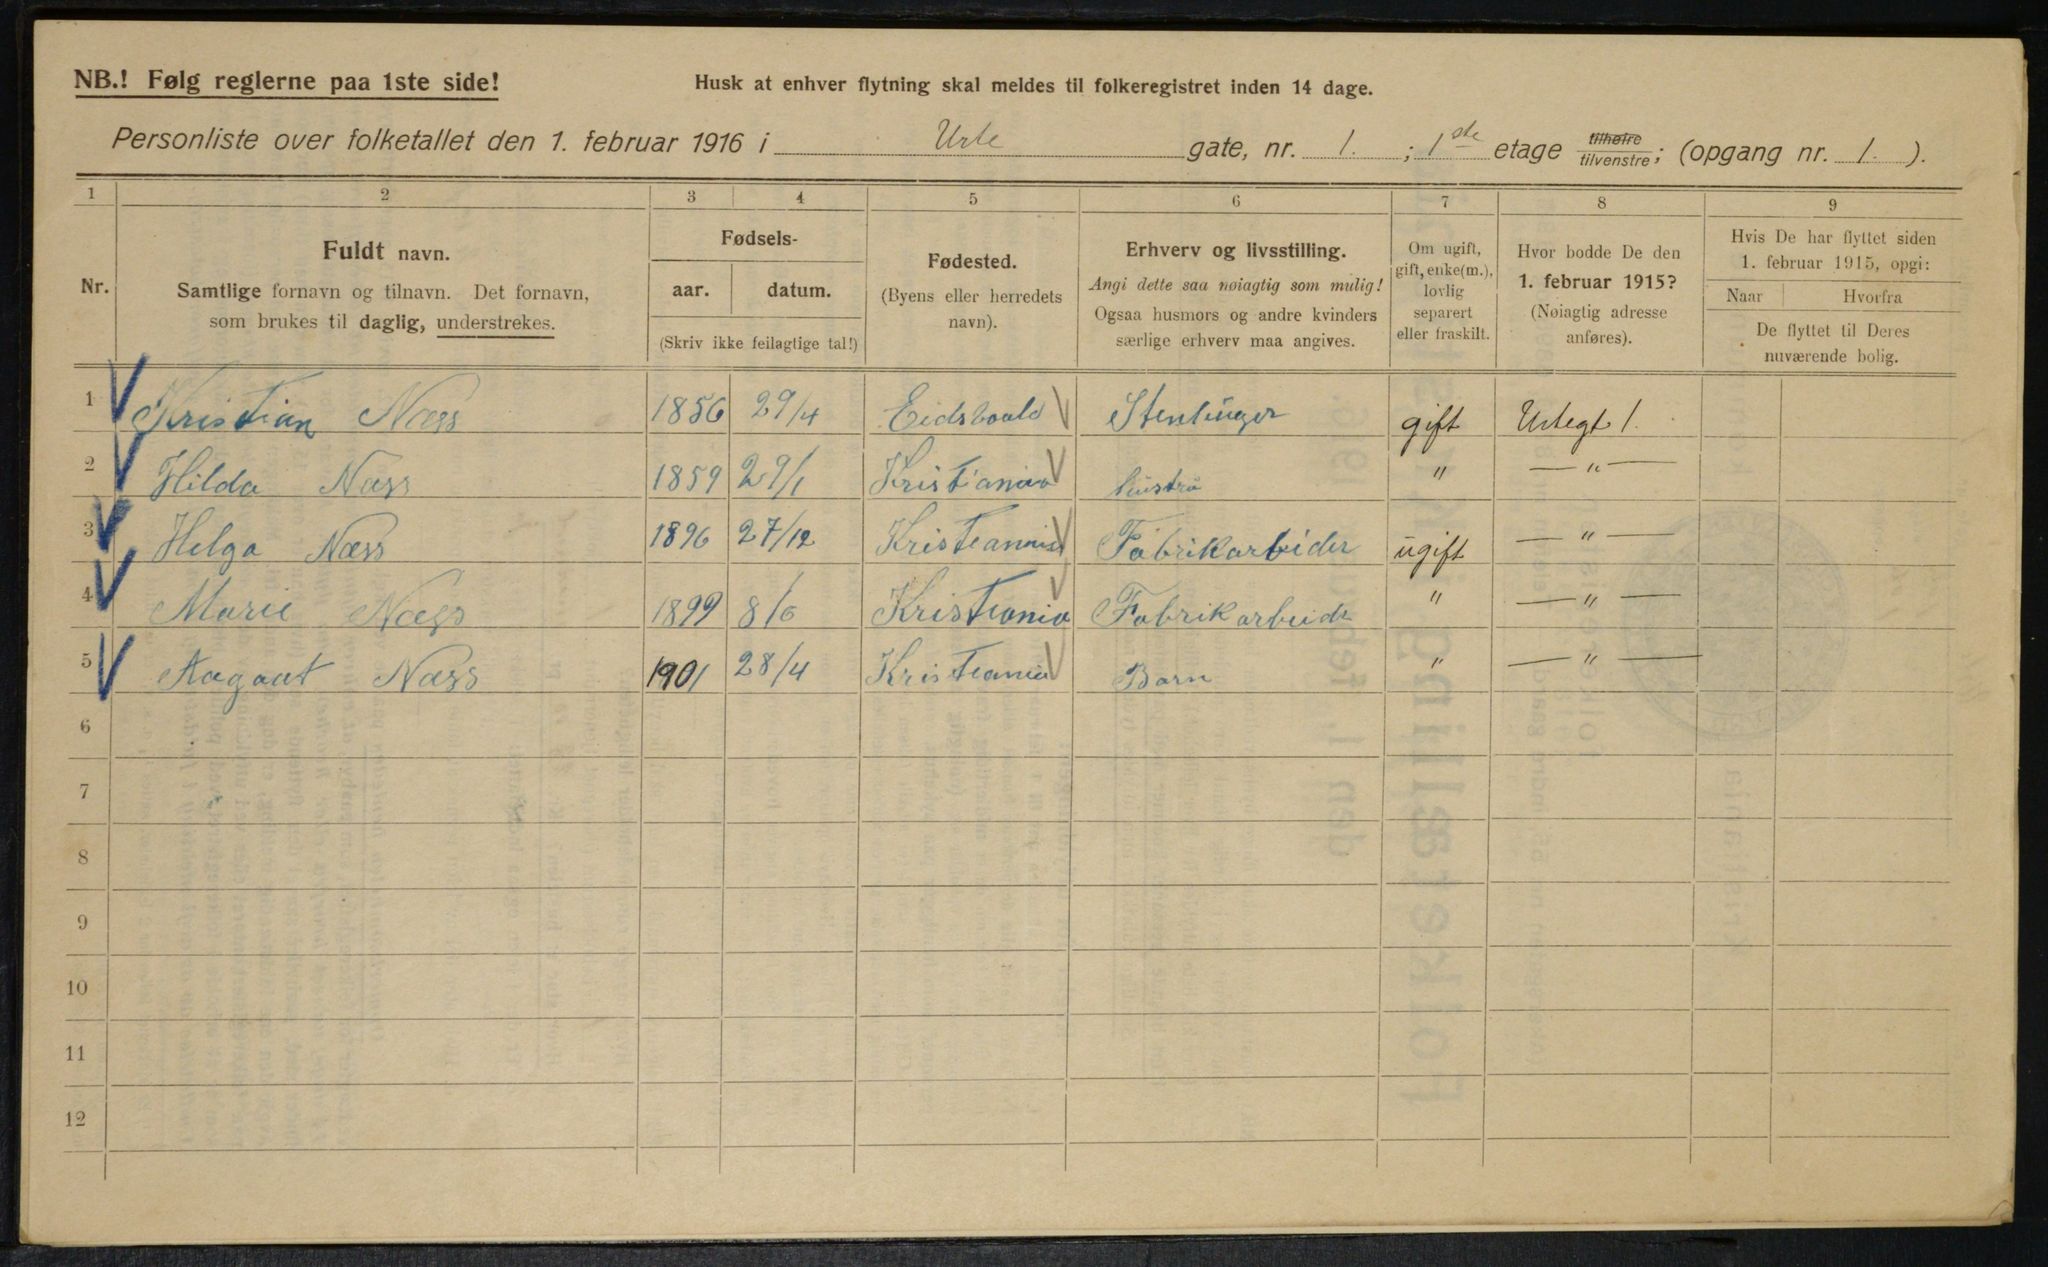 NB.! Følg reglerne paa 1ste side!
Husk at enhver flytning skal meldes til folkeregistret inden 14 dage.
Personliste over folketallet den 1. februar 1916 i Urte gate, nr. 1. ; 1ste etage tilhøire tilvenstre; (opgang nr. 1. ).
1 2 3 4 5 6 7 8 9
Nr.
Fuldt navn.
Samtlige fornavn og tilnavn. Det fornavn,
som brukes til daglig, understrekes.
Fødsels-
aar. datum.
(Skriv ikke feilagtige tal!)
Fødested.
(Byens eller herredets
navn).
Erhverv og livsstilling.
Angi dette saa nøiagtig som mulig!
Ogsaa husmors og andre kvinders
særlige erhverv maa angives.
Om ugift,
gift, enke(m.),
lovlig
separert
eller fraskilt.
Hvor bodde De den
1. februar 1915?
(Nøiagtig adresse
anføres).
Hvis De har flyttet siden
1. februar 1915, opgi:
Naar Hvorfra
De flyttet til Deres
nuværende bolig.
1 Kristian Næss 1856 29/4 Eidsvoald Stenhuger gift Urtegt 1.
2 Hilda Næss 1859 29/1 Kristiania hustru " — " —
3 Helga Næss 1896 27/12 Kristiannia Fabrikarbeider ugift — " —
4 Marie Næss 1899 8/6 Kristiania Fabrikarbeider " — " —
5 Næss 1901 28/4 Kristiania Barn " — " —
6
7
8
9
10
11
12